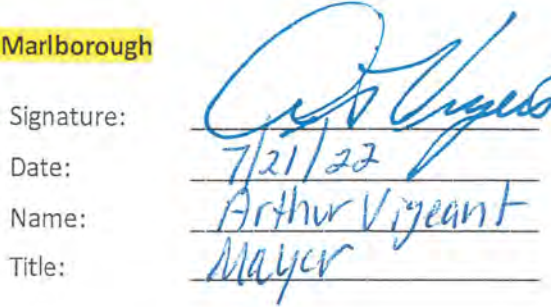 Marlborough
Signature:
Date: 7/21/22
Name: Arthur Vigeant
Title: Mayor